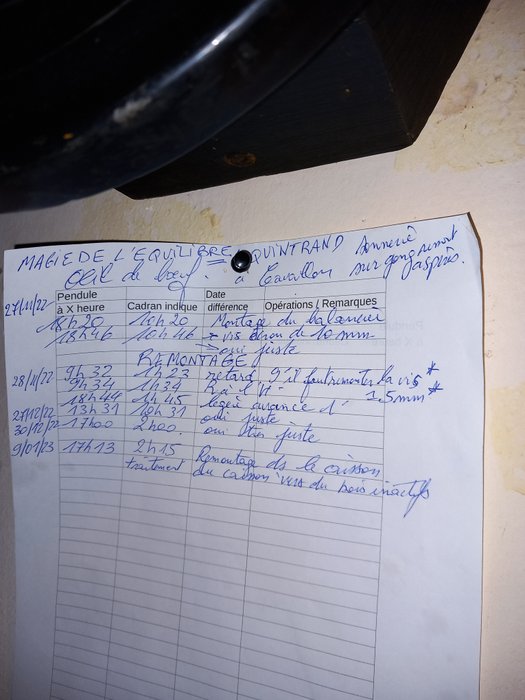 MAGIE DE L'EQUILIBRE = QUINTRAND Sonnerie
Œil de bœuf. à Cavaillon sur gong ressort
Pendule Date
à X heure Cadran indique différence Opérations / Remarques
27/11/22 18h20 10h20 Montage du balancier
18h46 10h46 + vis écrou de 10 mm
oui juste
REMONTAGE!
28/11/22 9h32 1h23 retard 9' il faut remonter la vis *
9h34 1h34 1,5mm *
18h44 légère avance 1'
27/12/22 13h31 oui juste
30/12/22 17h00 2h00 oui très juste
9/01/23 17h13 2h15 Remontage ds le caisson
traitement du caisson vers du bois inactifs